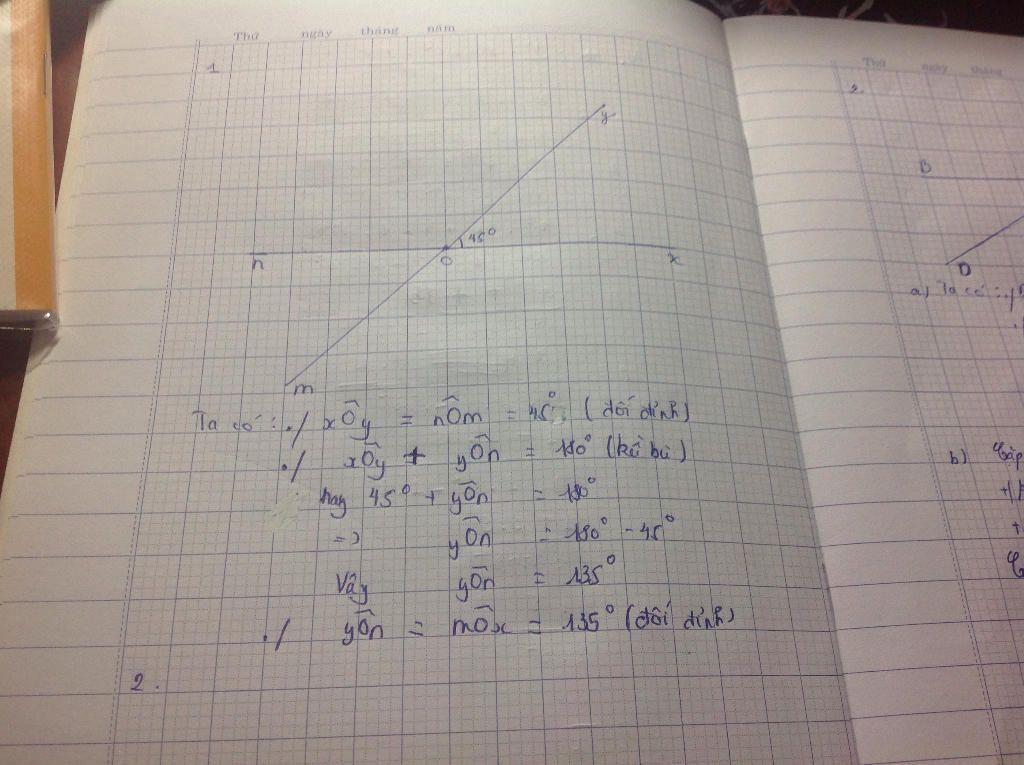 Thứ ngày tháng năm
1
y
45°
n O x
m
Ta có : ./ xÔy = nÔm = 45° (đối đỉnh)
./ xÔy + yÔn = 180° (kề bù)
hay 45° + yÔn = 180°
=> yÔn = 180° - 45°
Vậy yÔn = 135°
./ yÔn = mÔx = 135° (đối đỉnh)
2.
Thứ ngày tháng
2.
B
D
a) Ta có : ./
b) Cặp
+